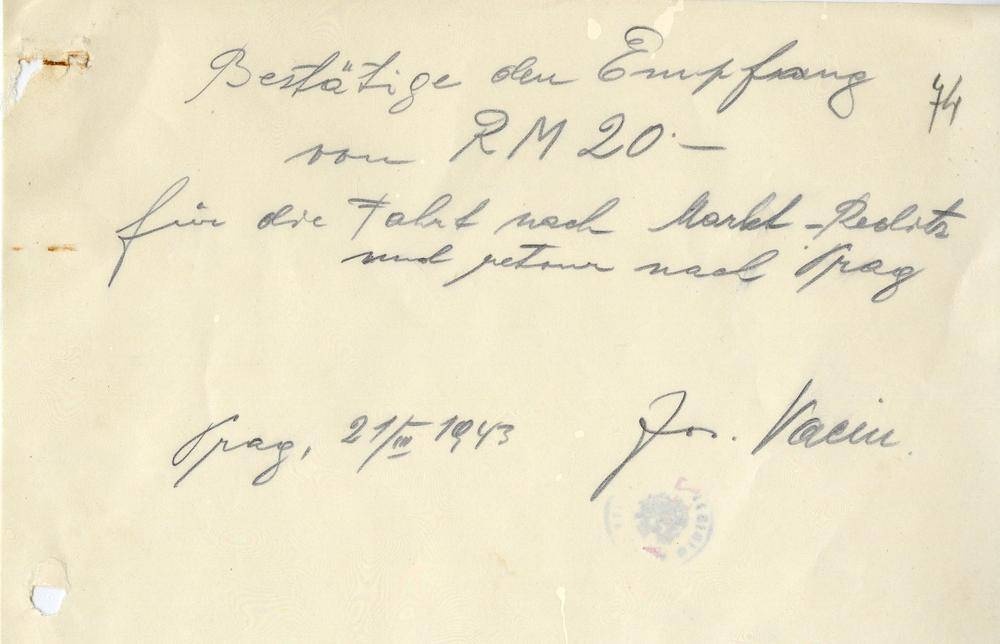 Bestätige den Empfang
74
von RM 20.—
für die Fahrt nach Markt-Redlitz
und retour nach Prag
Prag, 21/III 1943 Jos. Vacin.